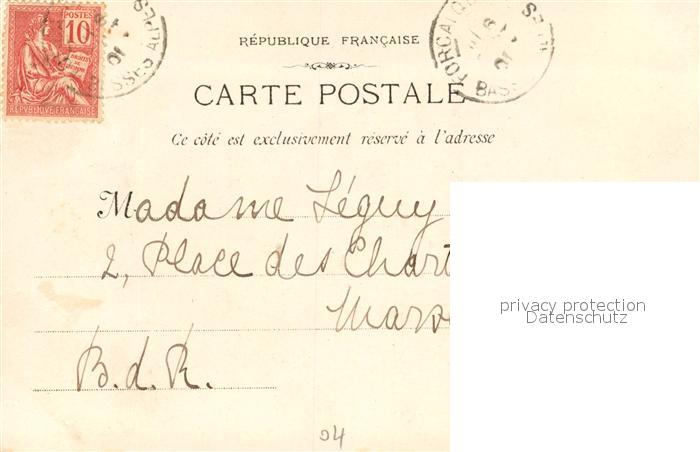 POSTES
10
RÉPUBLIQUE FRANÇAISE
BASSES ALPES
01
RÉPUBLIQUE FRANÇAISE
FORCALQU
01
CARTE POSTALE
Ce côté est exclusivement réservé à l'adresse
Madame Léguy
2, Place des Chart
Mars
privacy protection
Datenschutz
B.d.R.
04